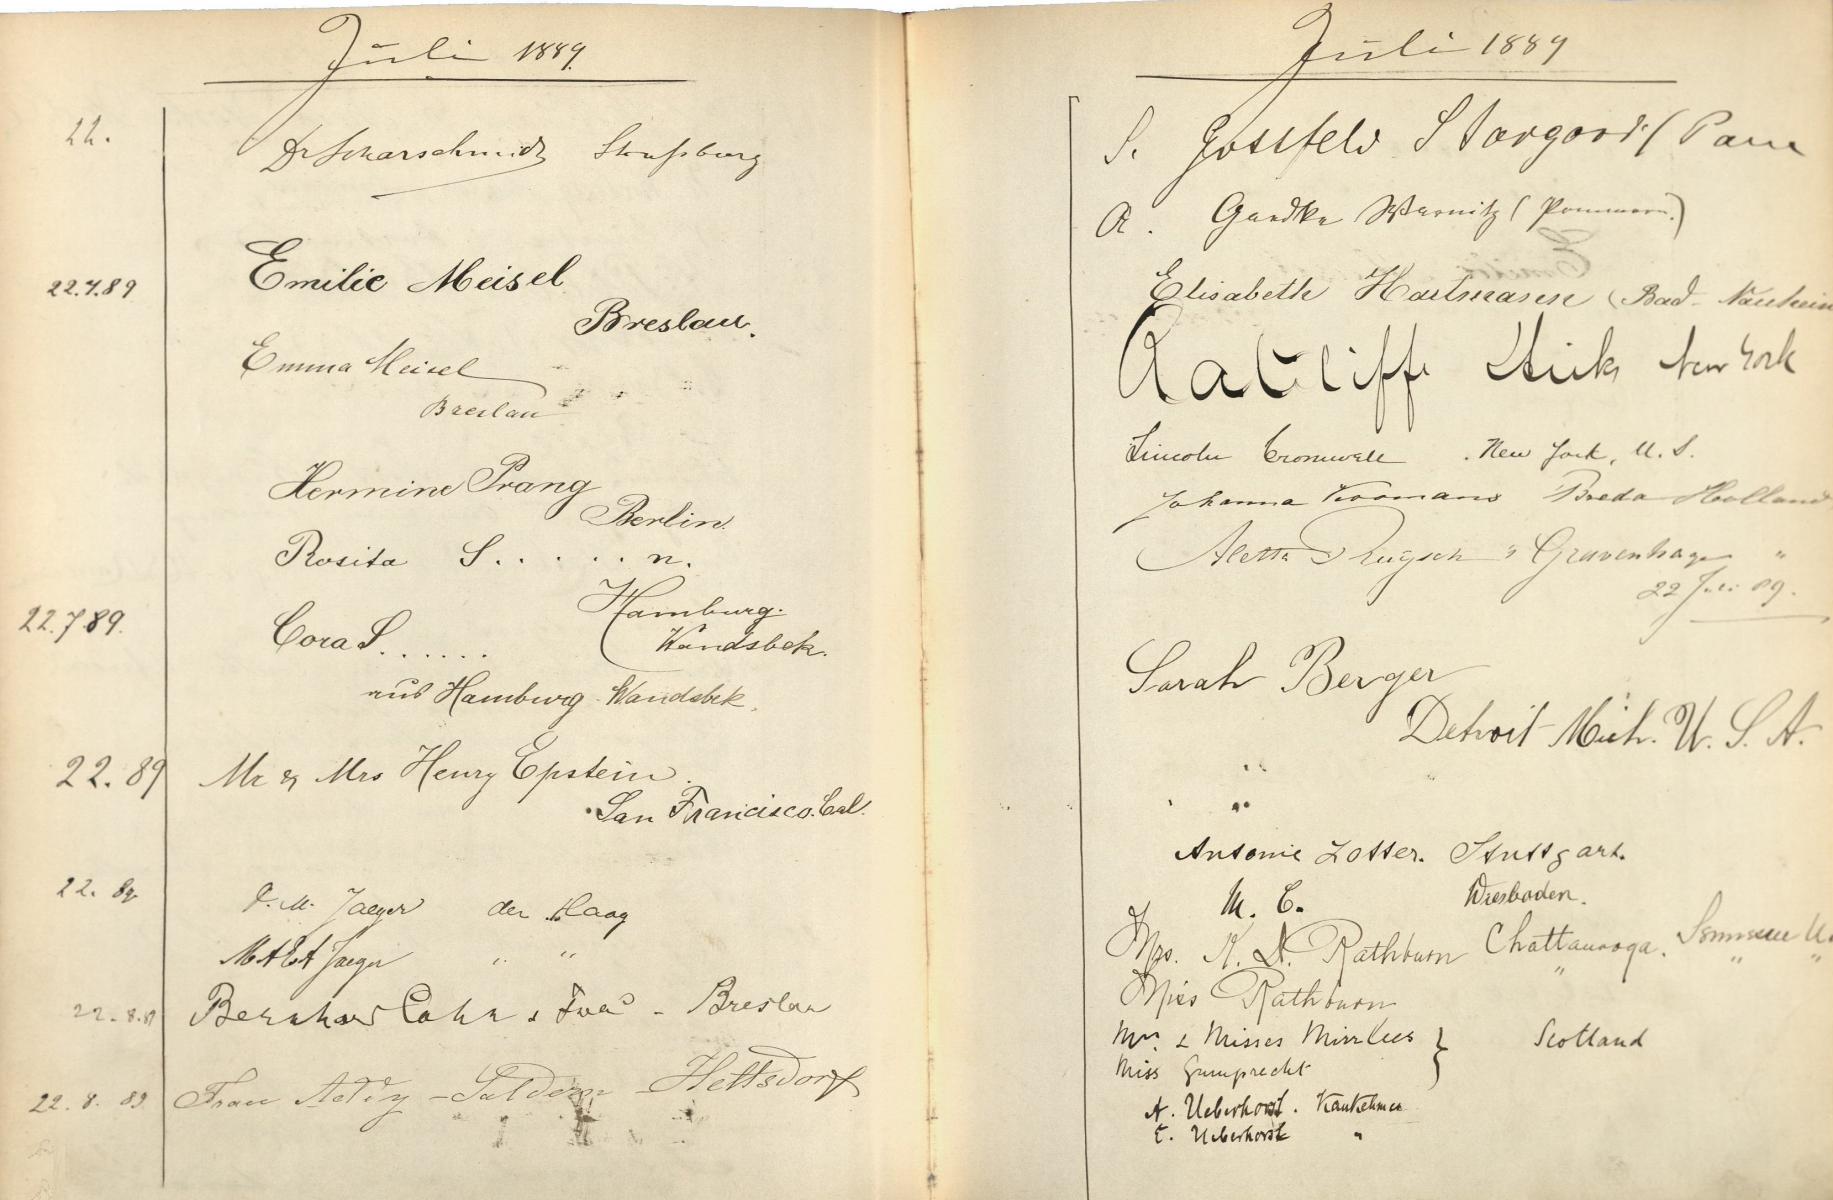 Juli 1889.
22.
Dr Scharschmidt Straßburg
22.7.89 Emilie Meisel
Breslau.
Emma Meisel
Breslau
Hermine Prang
Berlin.
Rosita S. . . . . . n.
Hamburg.
22.7.89. Cora S. . . . . . Wandsbek.
aus Hamburg-Wandsbek.
22.89 Mr & Mrs Henry Epstein.
San Francisco. Cal.
22. 89 Jaeger den Haag
Jaeger " "
22.8.89 Bernhard Cohn & Frau - Breslau
22. 8. 89 Frau - Saldern - Hettsdorf
Juli 1889
S. Gossfeld Stargard
A. Gaedke Warnitz (Pommern.)
Elisabeth Hartmann (Bad-Nauheim
Ratcliff Hicks New York
Lincoln Cromwell . New York, U. S.
Johanna Koomans Breda Holland
Aletta Ruysch 's Gravenhage "
22 Juli 89.
Sarah Berger
Detroit Mich. U. S. A.
Antonie Lotter. Stuttgart.
M. C. Wiesbaden.
Mrs. K. D. Rathburn Chattanooga. Tennessee U.
Miss Rathburn " " "
Mrs. & Misses Mirrlees } Scotland
Miss Gumprecht
A. Ueberhorst. Kaukehmen
E. Ueberhorst "